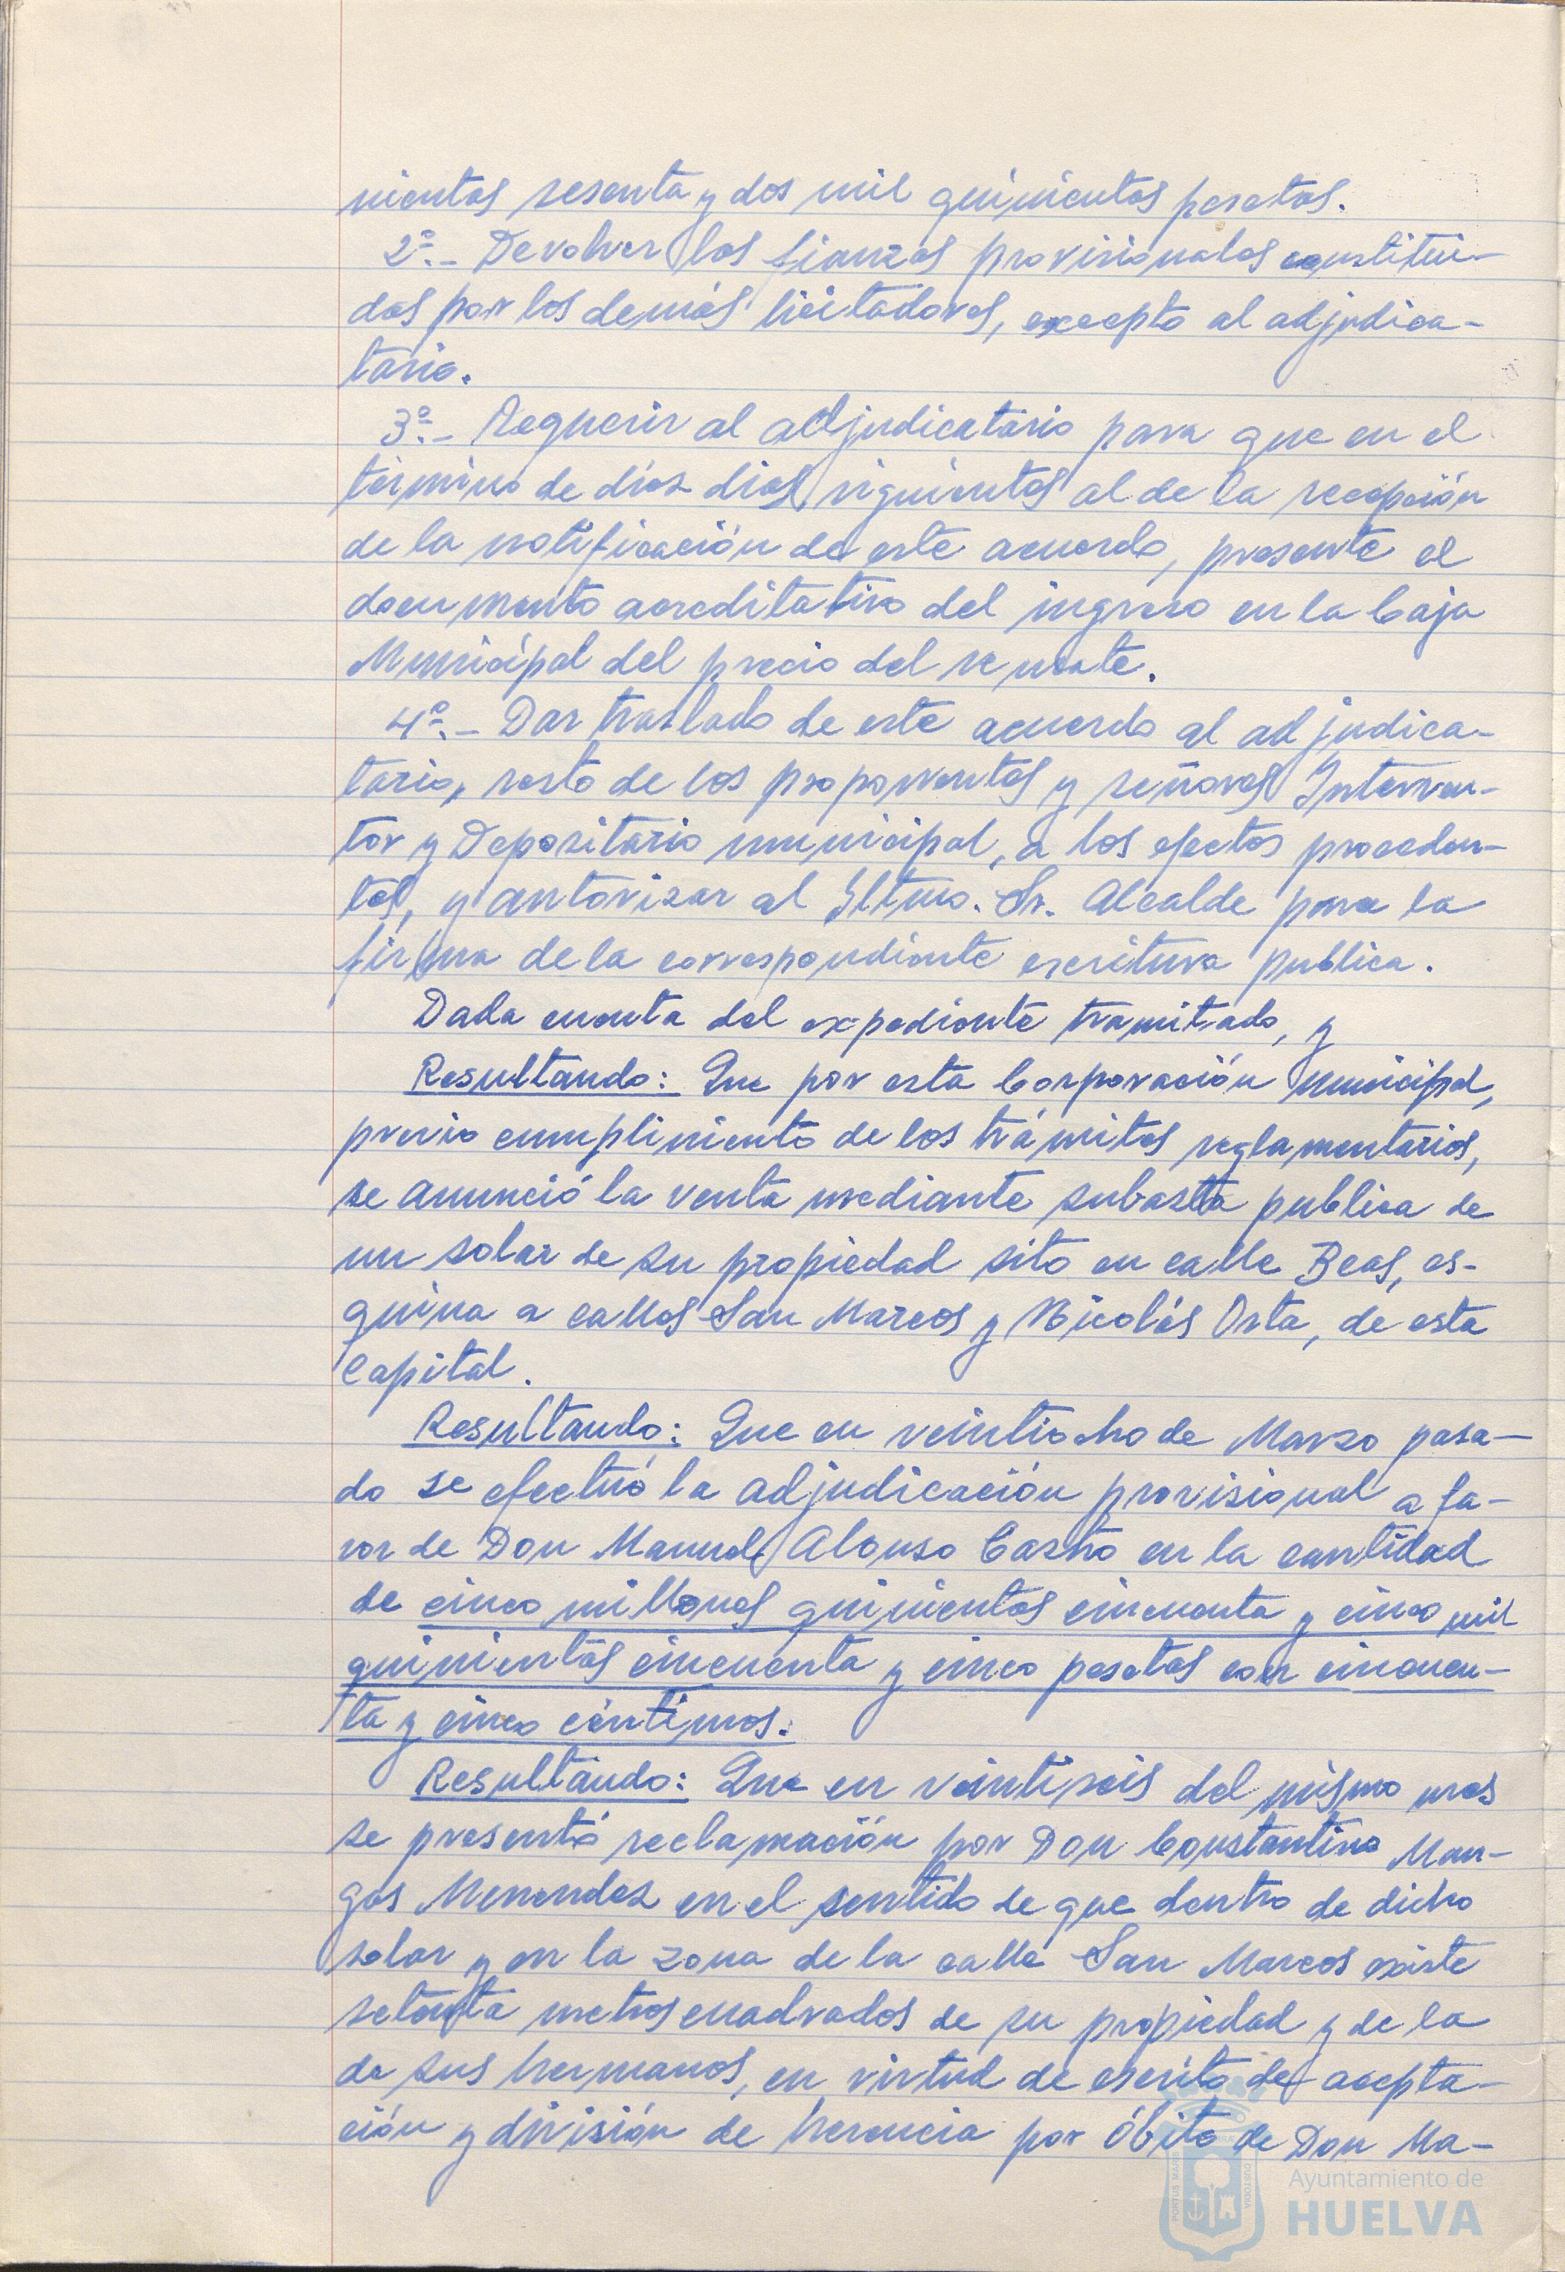 nientas sesenta y dos mil quinientas pesetas.
2º.- Devolver las fianzas provisionales constitui-
das por los demás licitadores, excepto al adjudica-
tario.
3º.- Requerir al adjudicatario para que en el
término de diez dias siguientes al de la recepción
de la notificación de este acuerdo, presente el
documento acreditativo del ingreso en la Caja
Municipal del precio del remate.
4º.- Dar traslado de este acuerdo al adjudica-
tario, resto de los proponentes y señores Interven-
tor y Depositario municipal, a los efectos proceden-
tes, y autorizar al Iltmo. Sr. Alcalde para la
firma de la correspondiente escritura publica.
Dada cuenta del expediente tramitado, y
Resultando: Que por esta Corporación municipal,
previo cumplimiento de los trámites reglamentarios,
se anunció la venta mediante subasta publica de
un solar de su propiedad sito en calle Beas, es-
quina a calles San Marcos y Nicolás Orta, de esta
Capital.
Resultando: Que en veintiocho de Marzo pasa-
do se efectuó la adjudicación provisional a fa-
vor de Don Manuel Alonso Castro en la cantidad
de cinco millones quinientas cincuenta y cinco mil
quinientas cincuenta y cinco pesetas con cincuen-
ta y cinco céntimos.
Resultando: Que en veintiseis del mismo mes
se presentó reclamación por Don Constantino Man-
gas Menendez en el sentido de que dentro de dicho
solar y en la zona de la calle San Marcos existe
setenta metros cuadrados de su propiedad y de la
de sus hermanos, en virtud de escrito de acepta-
ción y división de herencia por óbito de Don Ma-
Ayuntamiento de
HUELVA